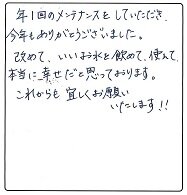 年1回のメンテナンスをしていただき、
今年もありがとうございました。
改めて、いいお水を飲めて、使えて、
本当に幸せだと思っております。
これからも宜しくお願い
いたします!!